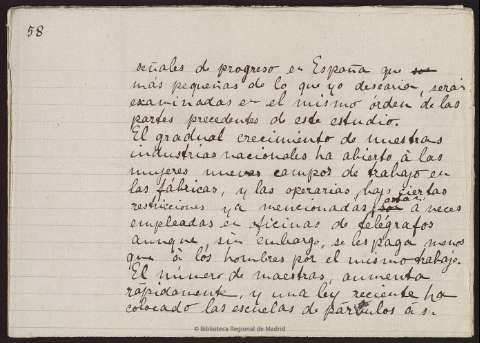 58
señales de progreso en España que
más pequeñas de lo que yo desearia, serán
examinadas en el mismo órden de las
partes precedentes de este estudio.
El gradual crecimiento de nuestras
industrias nacionales ha abierto á las
mujeres nuevos campos de trabajo en
las fábricas, y las operarias, bajo ciertas
restricciones ya mencionadas, están á veces
empleadas en oficinas de telégrafos
aunque, sin embargo, se les paga menos
que á los hombres por el mismo trabajo.
El número de maestras, aumenta
rápidamente, y una ley reciente ha
colocado las escuelas de párbulos á s.
© Biblioteca Regional de Madrid